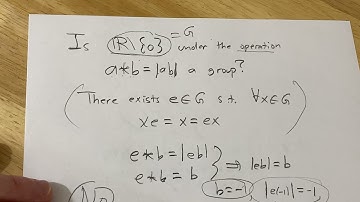 Is ℝ\{0} = G under the operation
a*b = |ab| a group?
(There exists e∈G s.t. ∀x∈G
xe = x = ex)
e*b = |eb|
e*b = b } ⇒ |eb| = b
No b=-1 |e(-1)| = -1,